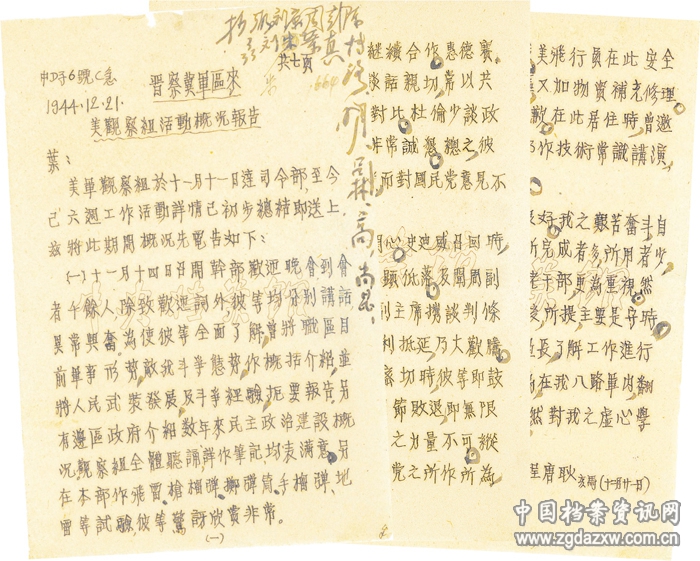 申D子6號C急
1944.12.21.
晋察冀軍區來
共七頁
美觀察組活動概況報告
葉：
美軍觀察組於十一月十一日達司令部，至今
已六週工作活動詳情已初步總結即送上
兹將此期間概況先電告如下：
(一)十一月十四日召開幹部歡迎晚會到會
者千餘人，除致歡迎詞外彼等均分别講話
異常興奮為使彼等全面了解曾將職區目
前軍事形勢敵我斗爭態勢，作概括介紹，並
將人民武裝發展及斗爭經驗，扼要報告，另
有邊區政府介紹數年來民主政治建設概
況，觀察組全體聽講詳作筆記均表滿意，另
在本部作飛雷槍榴彈擲彈筒手榴彈，地
雷等試驗，彼等驚訝欣賞非常。
(一)
繼續合作，惠德賽
談話親切，常以共
對比杜倫少談政
非常誠懇總之彼
而對國民黨意見不
心史迪威召回時
顯低落及聞周副
副主席攜談判條
利抵延乃大歡騰
切時彼等即鼓
節敗退，即無限
之力量不可縱
党之所作所為
美飛行員在此安全
又加物資補充修理
歡在此居住時曾邀
作技術常識講演
良好我之艱苦奮斗自
所完成者多所用者少
老干部更為重視然
所提主要是平時
長了解工作進行
在我八路軍内翻
然對我之虛心學
程唐耿
(十二月廿一日)
中国档案资讯网
www.zgdazxw.com.cn